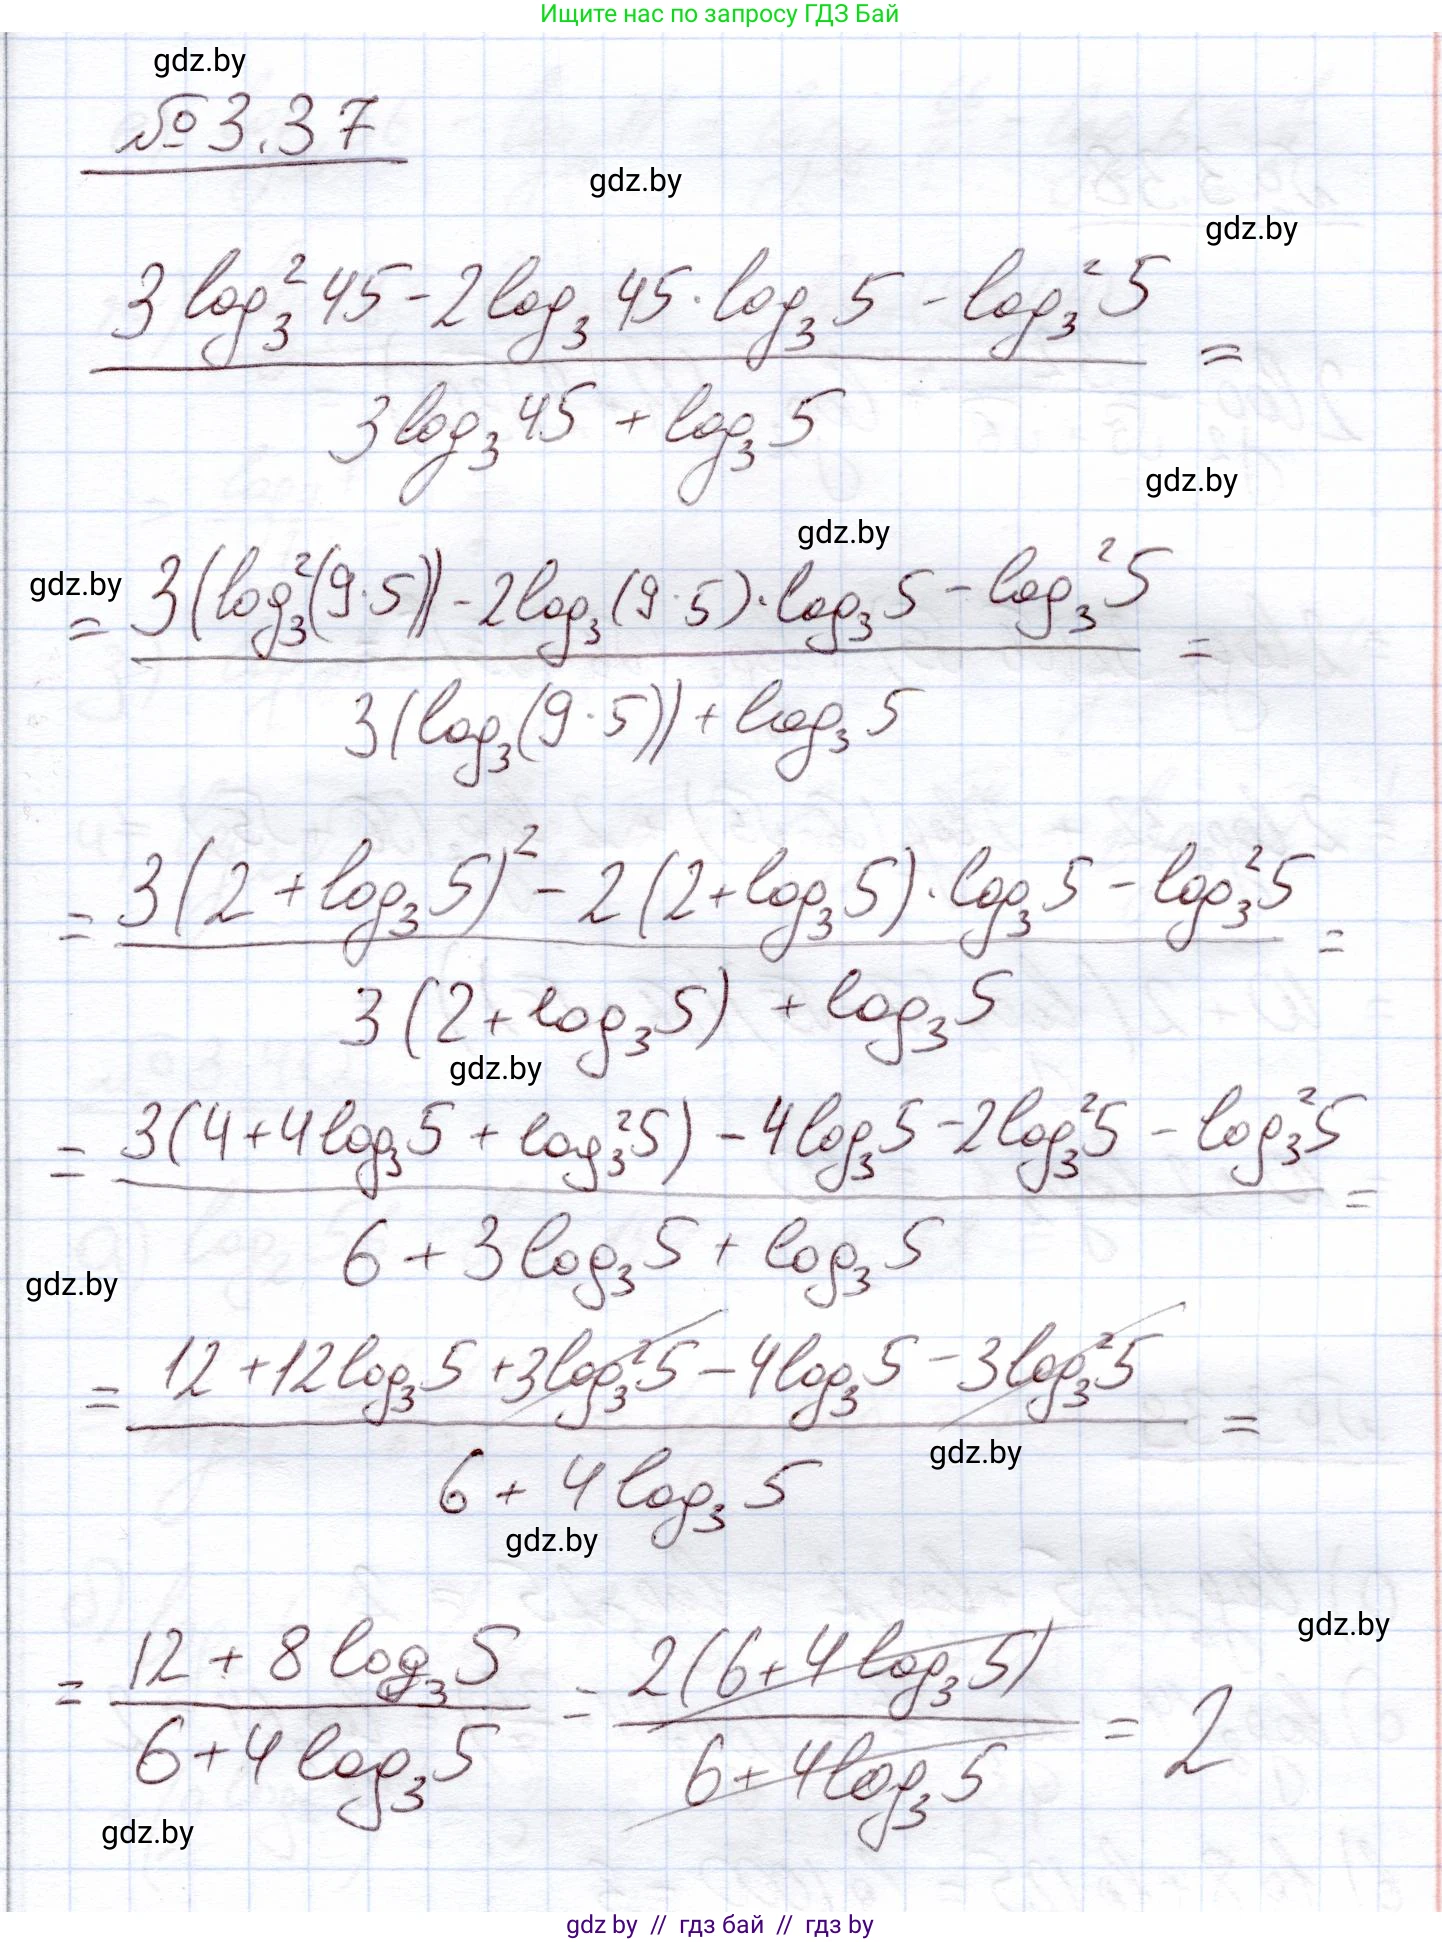 Ищите нас по запросу ГДЗ Бай
gdz.by
№3.37
gdz.by
gdz.by
(3 log₃² 45 - 2 log₃ 45 · log₃ 5 - log₃² 5) / (3 log₃ 45 + log₃ 5) =
gdz.by
gdz.by
gdz.by
= (3(log₃²(9·5)) - 2 log₃(9·5) · log₃ 5 - log₃² 5) / (3(log₃(9·5)) + log₃ 5) =
= (3(2 + log₃ 5)² - 2(2 + log₃ 5) · log₃ 5 - log₃² 5) / (3(2 + log₃ 5) + log₃ 5) =
gdz.by
= (3(4 + 4 log₃ 5 + log₃² 5) - 4 log₃ 5 - 2 log₃² 5 - log₃² 5) / (6 + 3 log₃ 5 + log₃ 5) =
gdz.by
= (12 + 12 log₃ 5 + 3 log₃² 5 - 4 log₃ 5 - 3 log₃² 5) / (6 + 4 log₃ 5) =
gdz.by
gdz.by
gdz.by
= (12 + 8 log₃ 5) / (6 + 4 log₃ 5) = (2(6 + 4 log₃ 5)) / (6 + 4 log₃ 5) = 2
gdz.by
gdz by // гдз бай // гдз by